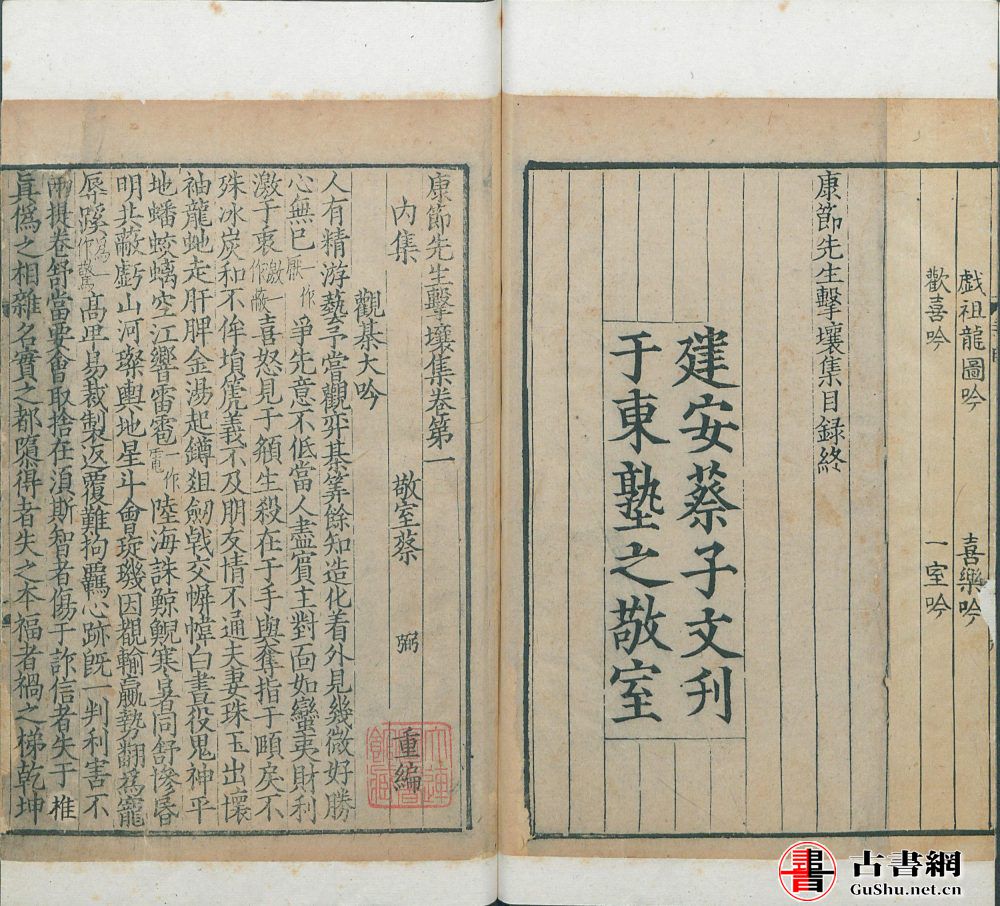 戯祖龍圖吟　喜樂吟
歡喜吟　一室吟
康節先生擊壤集目録終
建安蔡子文刋
于東塾之敬室
康節先生擊壤集卷第一
内集　敬室蔡　弼　重編
觀棊大吟
人有精游藝予嘗觀弈棊筭餘知造化着外見幾微好勝
心無已一作厭爭先意不低當人盡賔主對面如蠻夷財利
激于衷激一作蔽喜怒見于頯生殺在于手與奪指于頤戾不
殊冰炭和不侔塤篪義不及朋友情不通夫妻珠玉出壞
袖龍虵走肝脾金湯起鐏爼劒戟交幈幃白晝役鬼神平
地蟠蛟螭空江響雷雹一作電陸海誅鯨鯢寒暑同舒慘昏
明共蔽虧山河璨輿地星斗會琁璣因覩輸贏勢翻爲寵
辱蹊爲一作驚高卑易裁製返覆難拘羈心跡旣一判利害不
兩提卷舒當要會取捨在湏斯智者傷于詐信者失于椎
眞僞之相雜名實之都隳得者失之本福者禍之梯乾坤
古書網
GuShu.net.cn